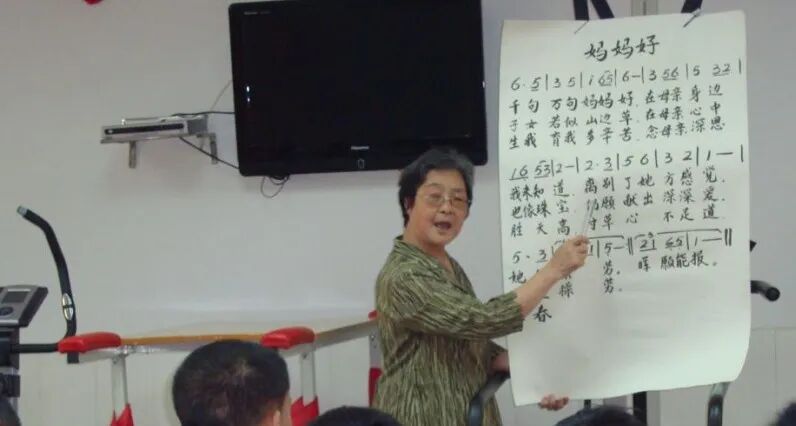 妈妈好
6· 5 | 3 5 | i 65 | 6 — | 3 56 | 5 32 |
千句万句妈妈好.在母亲身边
子女若似山边草.在母亲心中
生我育我多辛苦.念母亲深恩
16 53 | 2 — | 2· 3 | 5 6 | 3 2 | 1 — |
我未知道.离别了她方感觉.
也像珠宝.仍愿献出深深爱.
胜天高.寸草心不足道
5· 3 1 | 5 — ‖ 1 — ‖
她劳.晖愿能报.
操劳.
春